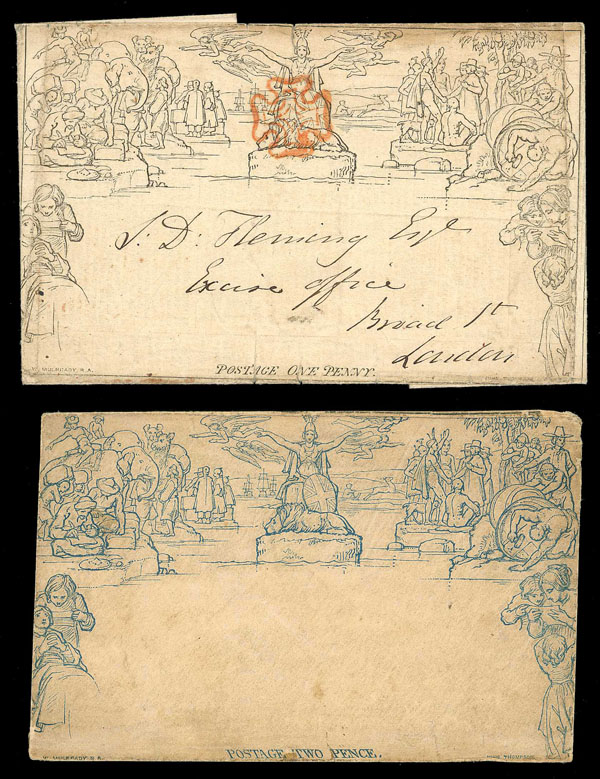 J. D. Fleming Esqr
Excise Office
Broad St
London
W. MULREADY. R.A.
POSTAGE ONE PENNY.
JOHN THOMPSON
W. MULREADY. R.A.
POSTAGE TWO PENCE.
JOHN THOMPSON